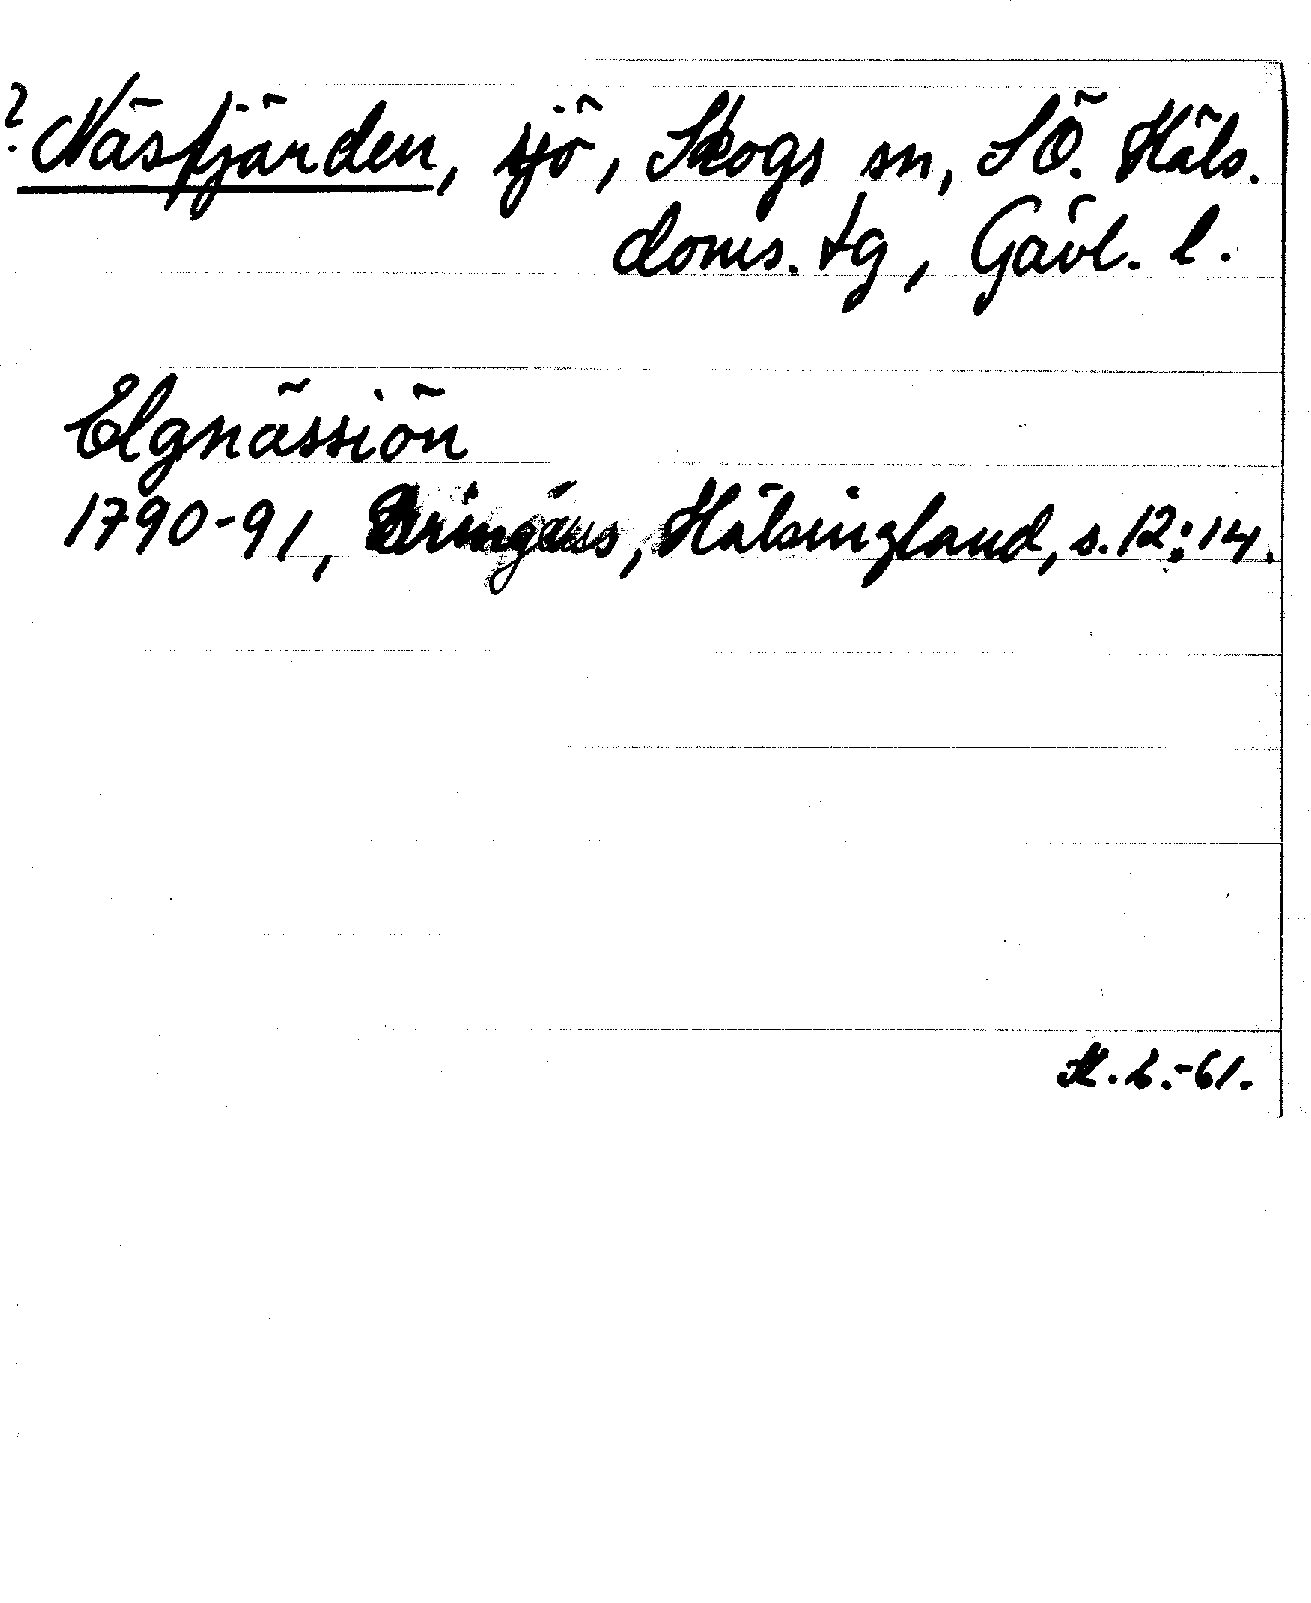 ? Näsfjärden, sjö, Skogs sn, SÖ. Häls.
doms. tg, Gävl. l.
Elgnässiön
1790-91, Bringéus, Hälsingland, s. 12:14.